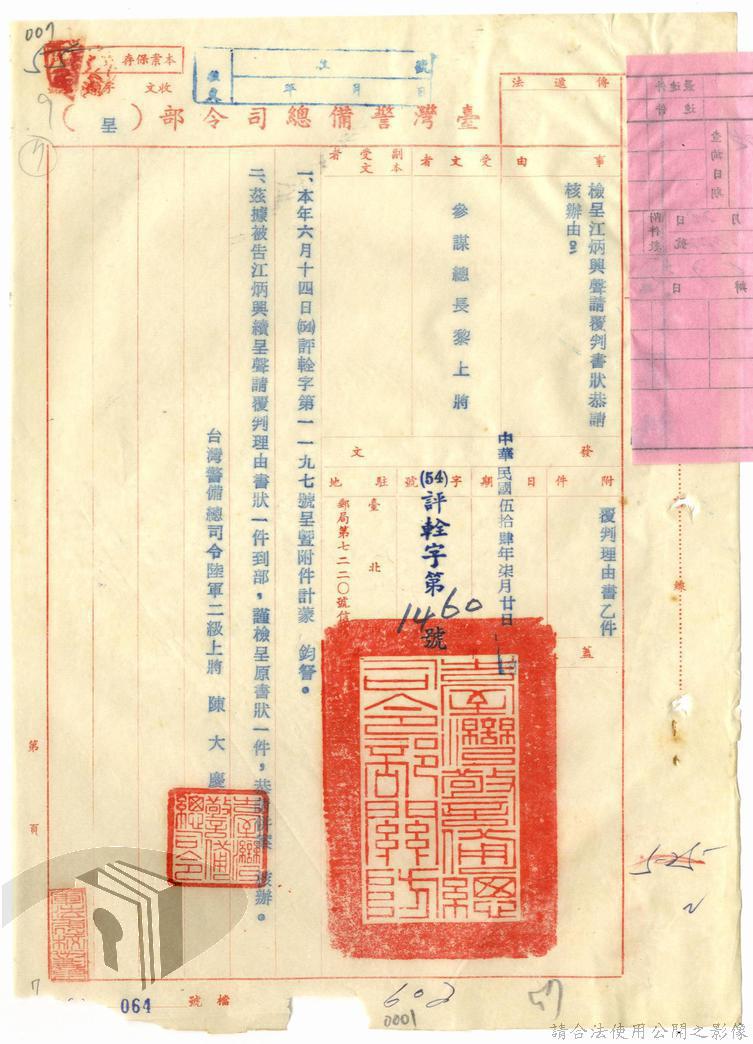 007
575
本案保存
收文 字
號
年 月 日
臺灣警備總司令部（呈）
傳遞法
事由
檢呈江炳興聲請覆判書狀恭請
核辦由。
受文者
參謀總長黎上將
副本
受文者
發文
附件
覆判理由書乙件
日期
中華民國伍拾肆年柒月廿日
字號
(54)評輇字第1460號
駐地
臺北
郵局第七二二〇號信
蓋
一、本年六月十四日(54)評輇字第一一九七號呈暨附件計蒙 鈞詧。
二、茲據被告江炳興續呈聲請覆判理由書狀一件到部，謹檢呈原書狀一件，恭請併案 核辦。
台灣警備總司令陸軍二級上將 陳大慶
臺灣警備總司令部關防
臺灣警備總司令
最速件
速件
查詢日期
月 日
號
附件數
線
第 頁
525
檔號
064
602
0001
請合法使用公開之影像